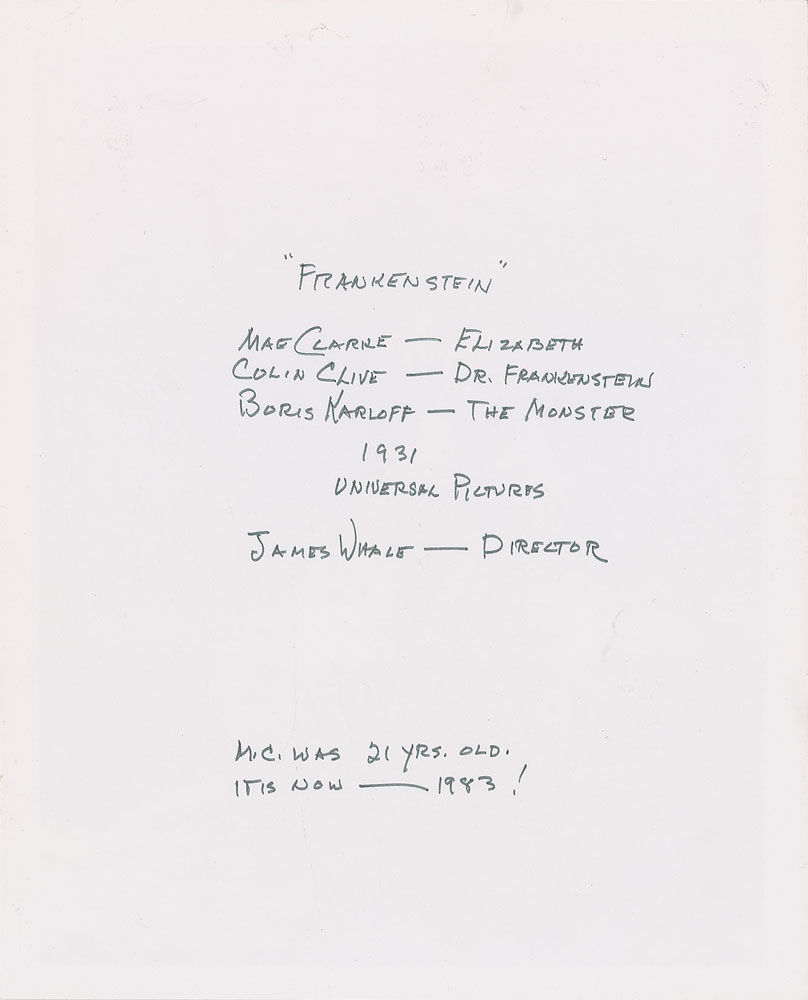 "FRANKENSTEIN"
MAE CLARKE — ELIZABETH
COLIN CLIVE — DR. FRANKENSTEIN
BORIS KARLOFF — THE MONSTER
1931
UNIVERSAL PICTURES
JAMES WHALE — DIRECTOR
M.C. WAS 21 YRS. OLD.
IT IS NOW — 1983!